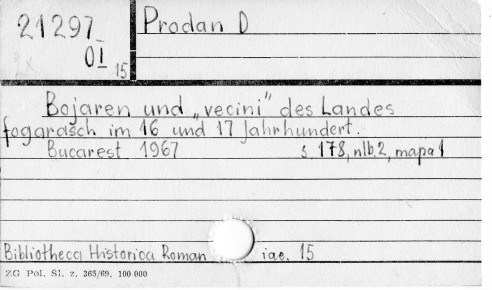 21297
01 15
Prodan D
Bojaren und „vecini" des Landes
fogarasch im 16 und 17 Jahrhundert.
Bucarest 1967 s. 178, nlb.2, mapa 1
Bibliotheca Historica Roman iae. 15
ZG Pol. Sl. z. 365/69. 100 000